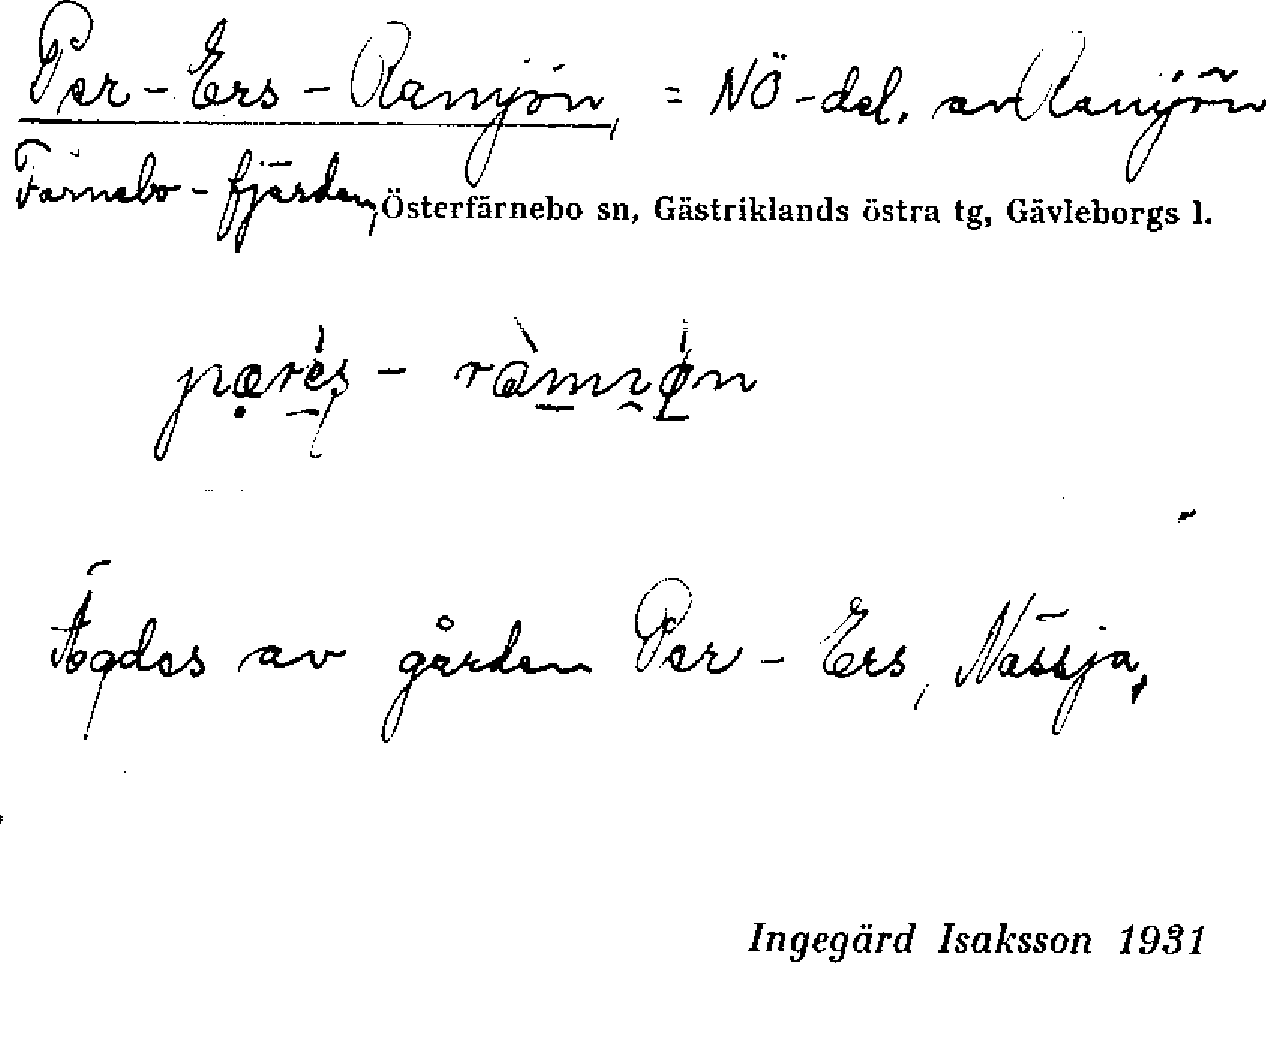 Per-Ers-Ramjön, = NÖ-del. av Ramjön
Färnebo-fjärden, Österfärnebo sn, Gästriklands östra tg, Gävleborgs l.
Ägdes av gården Per-Ers, Nässja,
Ingegärd Isaksson 1931